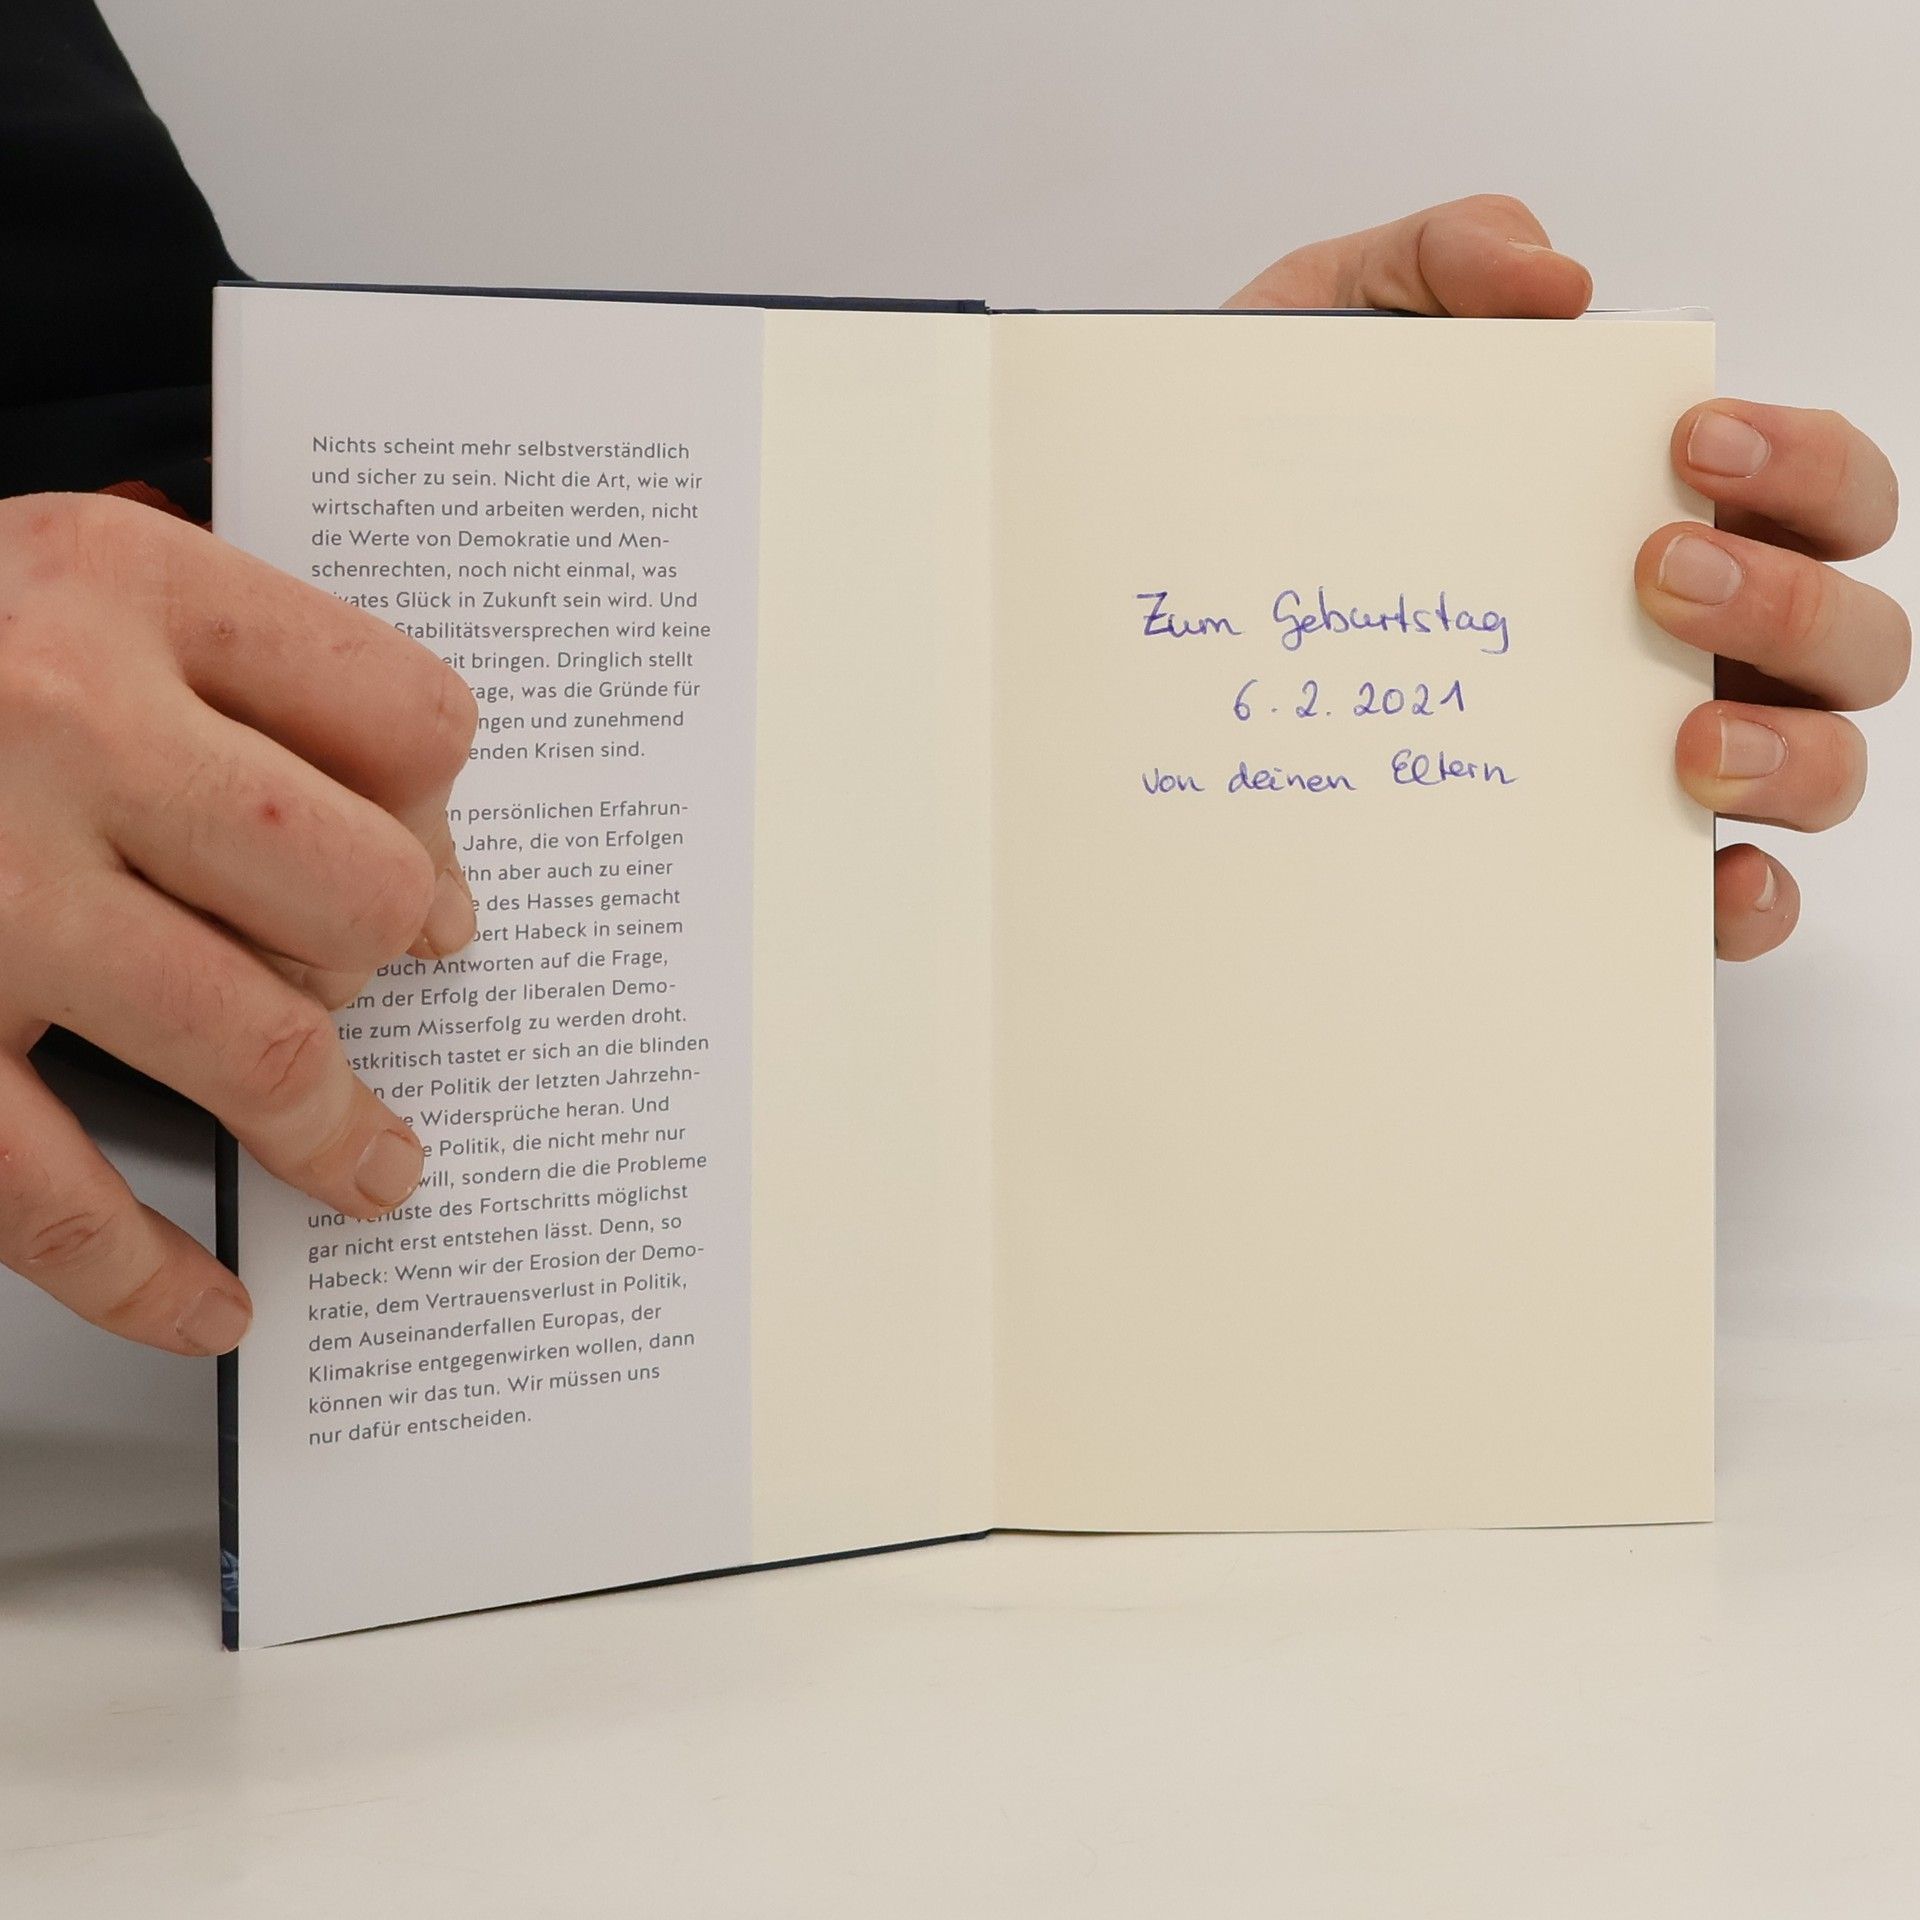 Nichts scheint mehr selbstverständlich
und sicher zu sein. Nicht die Art, wie wir
wirtschaften und arbeiten werden, nicht
die Werte von Demokratie und Men-
schenrechten, noch nicht einmal, was
Glück in Zukunft sein wird. Und
Stabilitätsversprechen wird keine
bringen. Dringlich stellt
was die Gründe für
und zunehmend
Krisen sind.
persönlichen Erfahrun-
Jahre, die von Erfolgen
ihn aber auch zu einer
des Hasses gemacht
Habeck in seinem
Buch Antworten auf die Frage,
der Erfolg der liberalen Demo-
tie zum Misserfolg zu werden droht.
tastet er sich an die blinden
der Politik der letzten Jahrzehn-
Widersprüche heran. Und
Politik, die nicht mehr nur
will, sondern die die Probleme
und Verluste des Fortschritts möglichst
gar nicht erst entstehen lässt. Denn, so
Habeck: Wenn wir der Erosion der Demo-
kratie, dem Vertrauensverlust in Politik,
dem Auseinanderfallen Europas, der
Klimakrise entgegenwirken wollen, dann
können wir das tun. Wir müssen uns
nur dafür entscheiden.
Zum Geburtstag
6. 2. 2021
von deinen Eltern